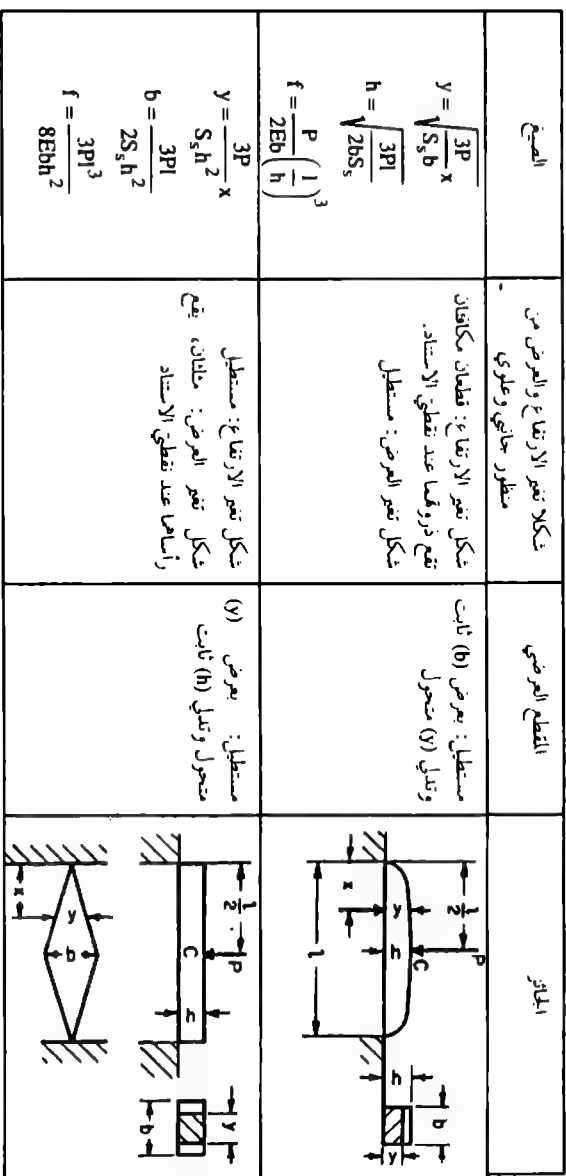 الجائز
المقطع العرضي
شكلا تغير الارتفاع والعرض من
منظور جانبي وعلوي
الصيغ
P
l/2
C
y
h
x
l
h
b
y
مستطيل: بعرض (b) ثابت
وتدلي (y) متحول
شكل تغير الارتفاع: قطعان مكافئان
تقع ذروتهما عند نقطتي الاستناد.
شكل تغير العرض: مستطيل
y = √(3P/(Sₛb) x)
h = √(3Pl/(2bSₛ))
f = P/(2Eb) (l/h)³
P
l/2
C
h
y
b
x
y
b
مستطيل: بعرض (y)
متحول وتدلي (h) ثابت
شكل تغير الارتفاع: مستطيل
شكل تغير العرض: مثلثان، يقع
رأساهما عند نقطتي الاستناد
y = 3P/(Sₛh²) x
b = 3Pl/(2Sₛh²)
f = 3Pl³/(8Ebh²)